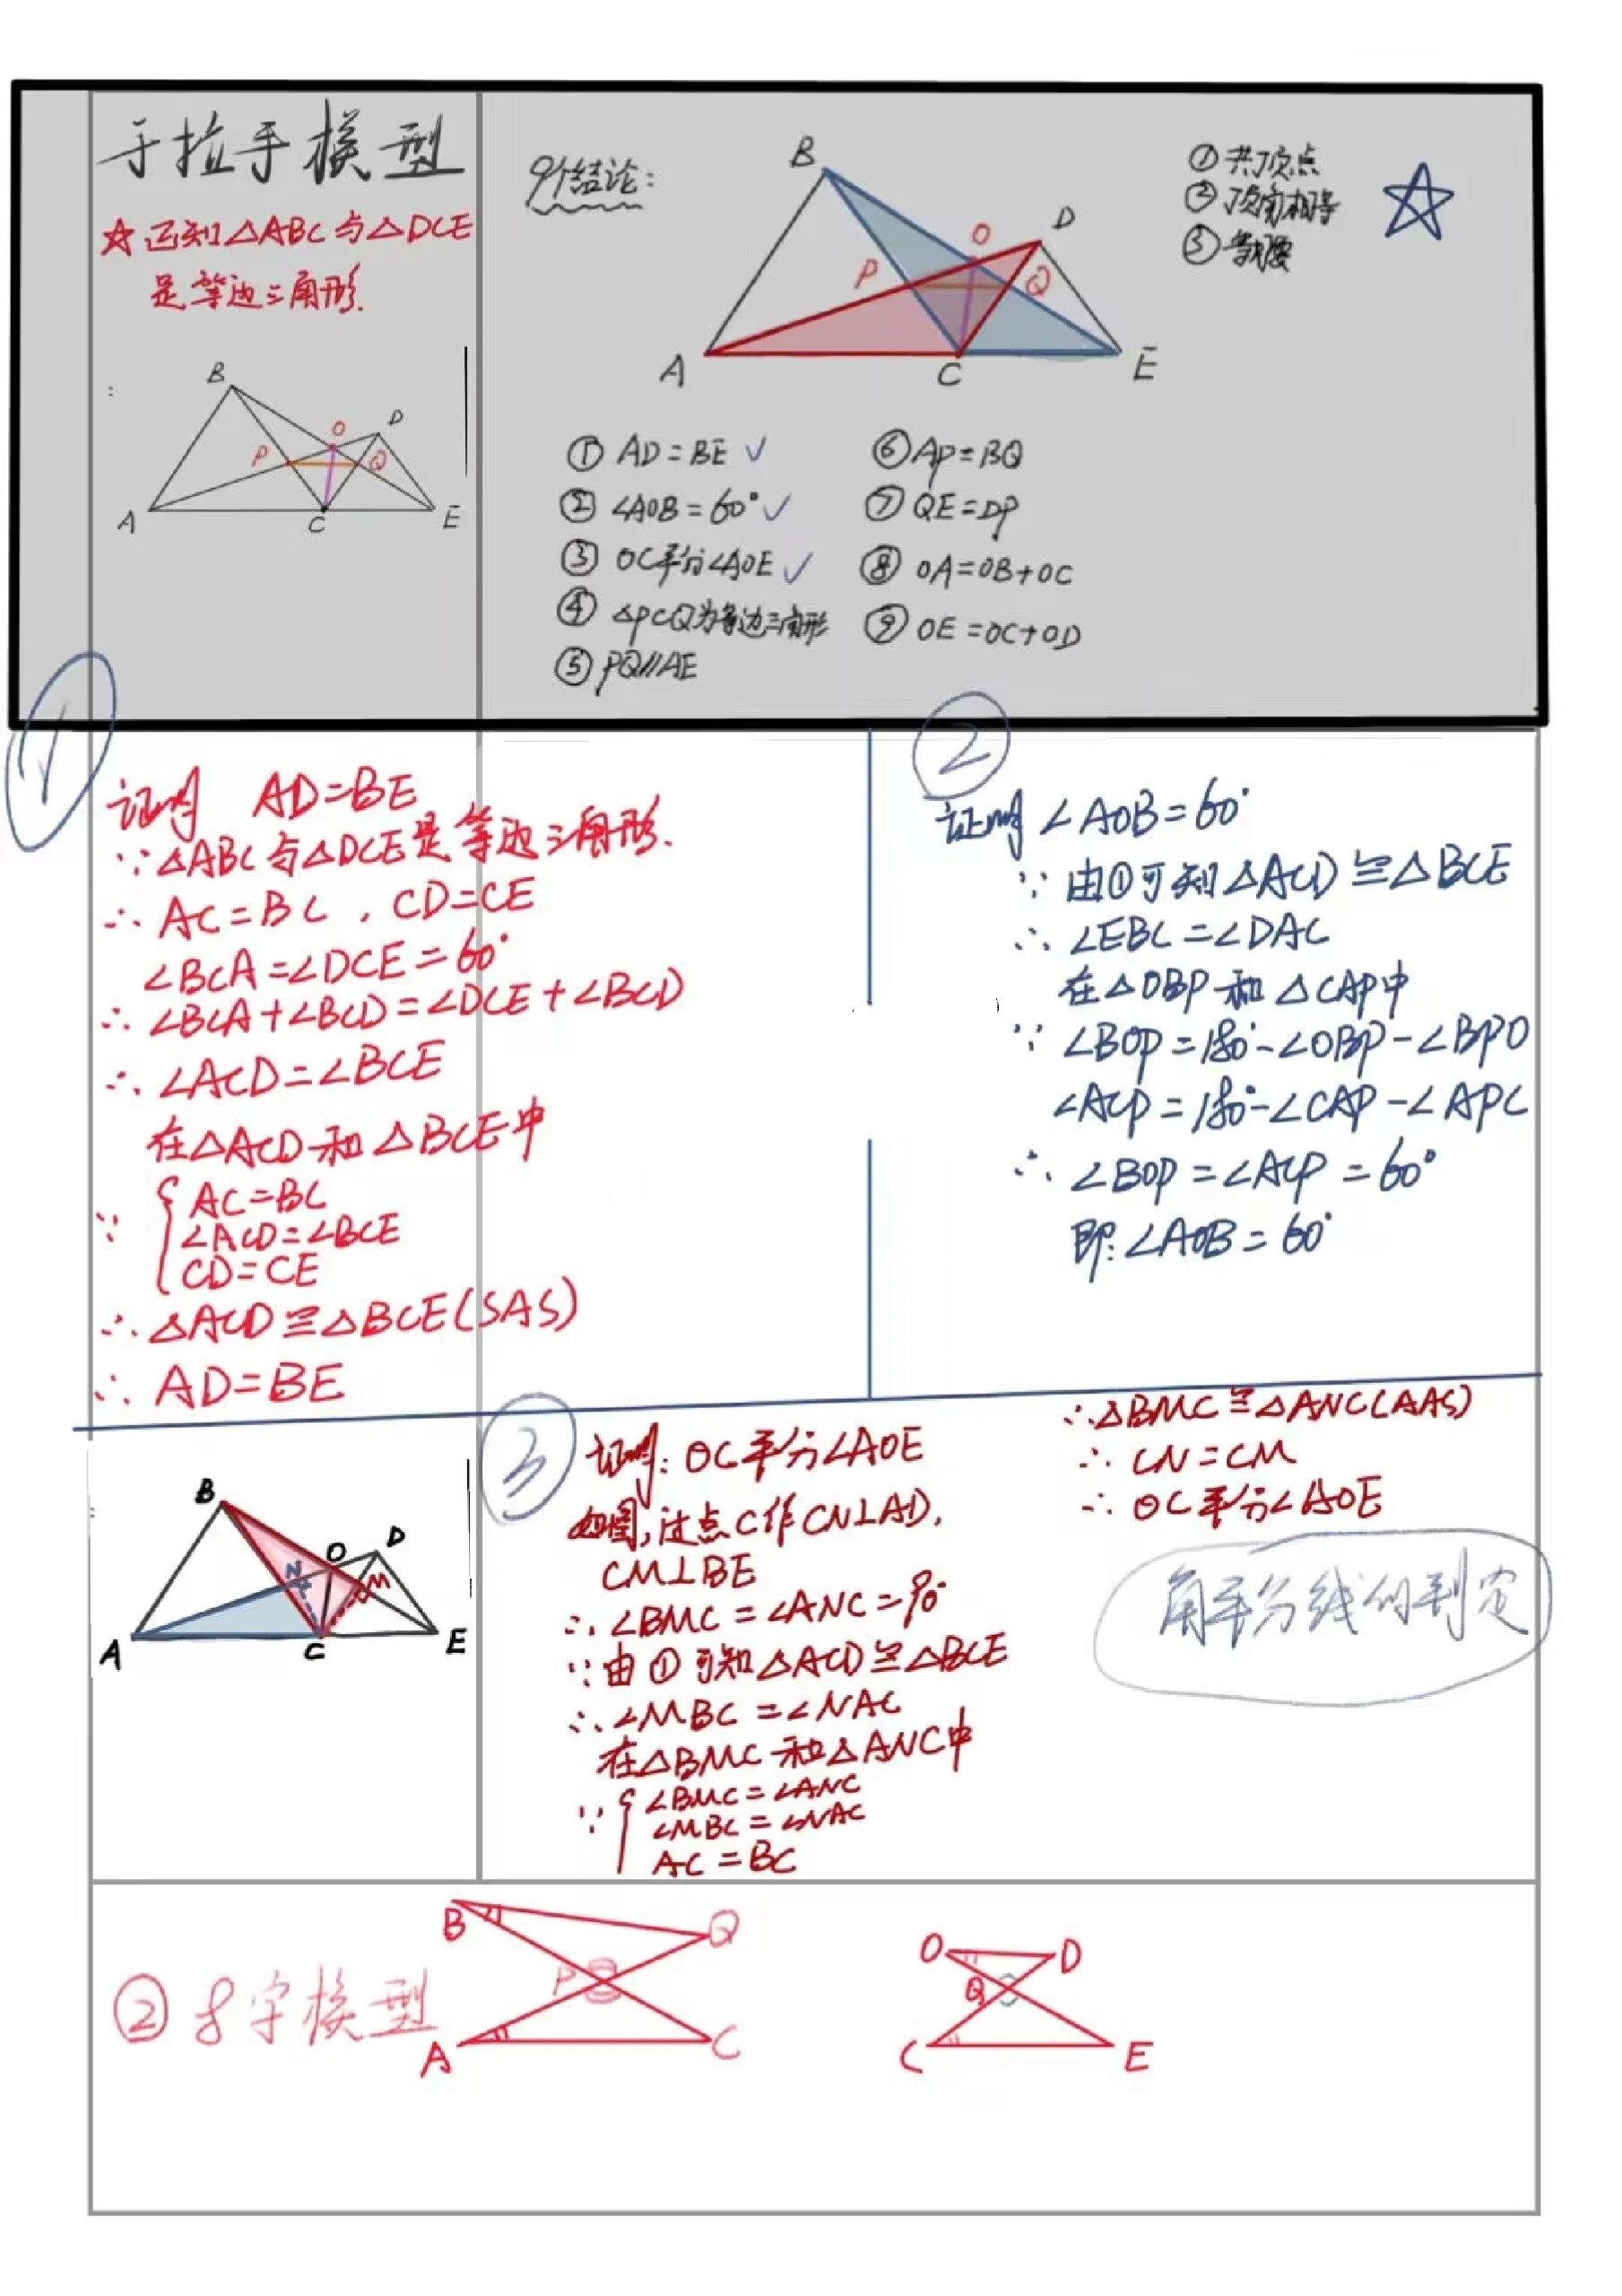 手拉手模型
☆已知△ABC与△DCE
是等边三角形.
B
O
D
P
Q
A
C
E
9个结论:
B
O
D
P
Q
A
C
E
①共顶点
②顶角相等
③等腰
① AD=BE ✓
② ∠AOB=60° ✓
③ OC平分∠AOE ✓
④ △PCQ为等边三角形
⑤ PQ∥AE
⑥ AP=BQ
⑦ QE=DP
⑧ OA=OB+OC
⑨ OE=OC+OD
①
证明 AD=BE
∵△ABC与△DCE是等边三角形.
∴ AC=BC, CD=CE
∠BCA=∠DCE=60°
∴ ∠BCA+∠BCD=∠DCE+∠BCD
∴ ∠ACD=∠BCE
在△ACD和△BCE中
∵ { AC=BC
∠ACD=∠BCE
CD=CE
∴ △ACD≌△BCE(SAS)
∴ AD=BE
②
证明∠AOB=60°
∵ 由①可知△ACD≌△BCE
∴ ∠EBC=∠DAC
在△OBP和△CAP中
∵ ∠BOP=180°-∠OBP-∠BPO
∠ACP=180°-∠CAP-∠APC
∴ ∠BOP=∠ACP=60°
即:∠AOB=60°
B
O
D
N
M
A
C
E
③
证明: OC平分∠AOE
如图,过点C作CN⊥AD,
CM⊥BE
∴ ∠BMC=∠ANC=90°
∵由①可知△ACD≌△BCE
∴ ∠MBC=∠NAC
在△BMC和△ANC中
∵ { ∠BMC=∠ANC
∠MBC=∠NAC
AC=BC
∴△BMC≌△ANC(AAS)
∴ CN=CM
∴ OC平分∠AOE
角平分线的判定
② 8字模型
B
Q
P
A
C
O
D
Q
C
E